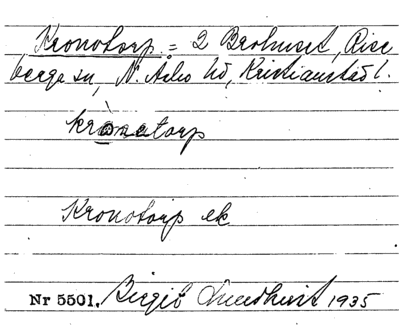 Kronotorp = 2 Brohuset, Rise
berga sn, N. Åsbo hd, Kristianstads l.
krònatorp
Kronotorp ek
Nr 5501. Birgit Lundkvist 1935